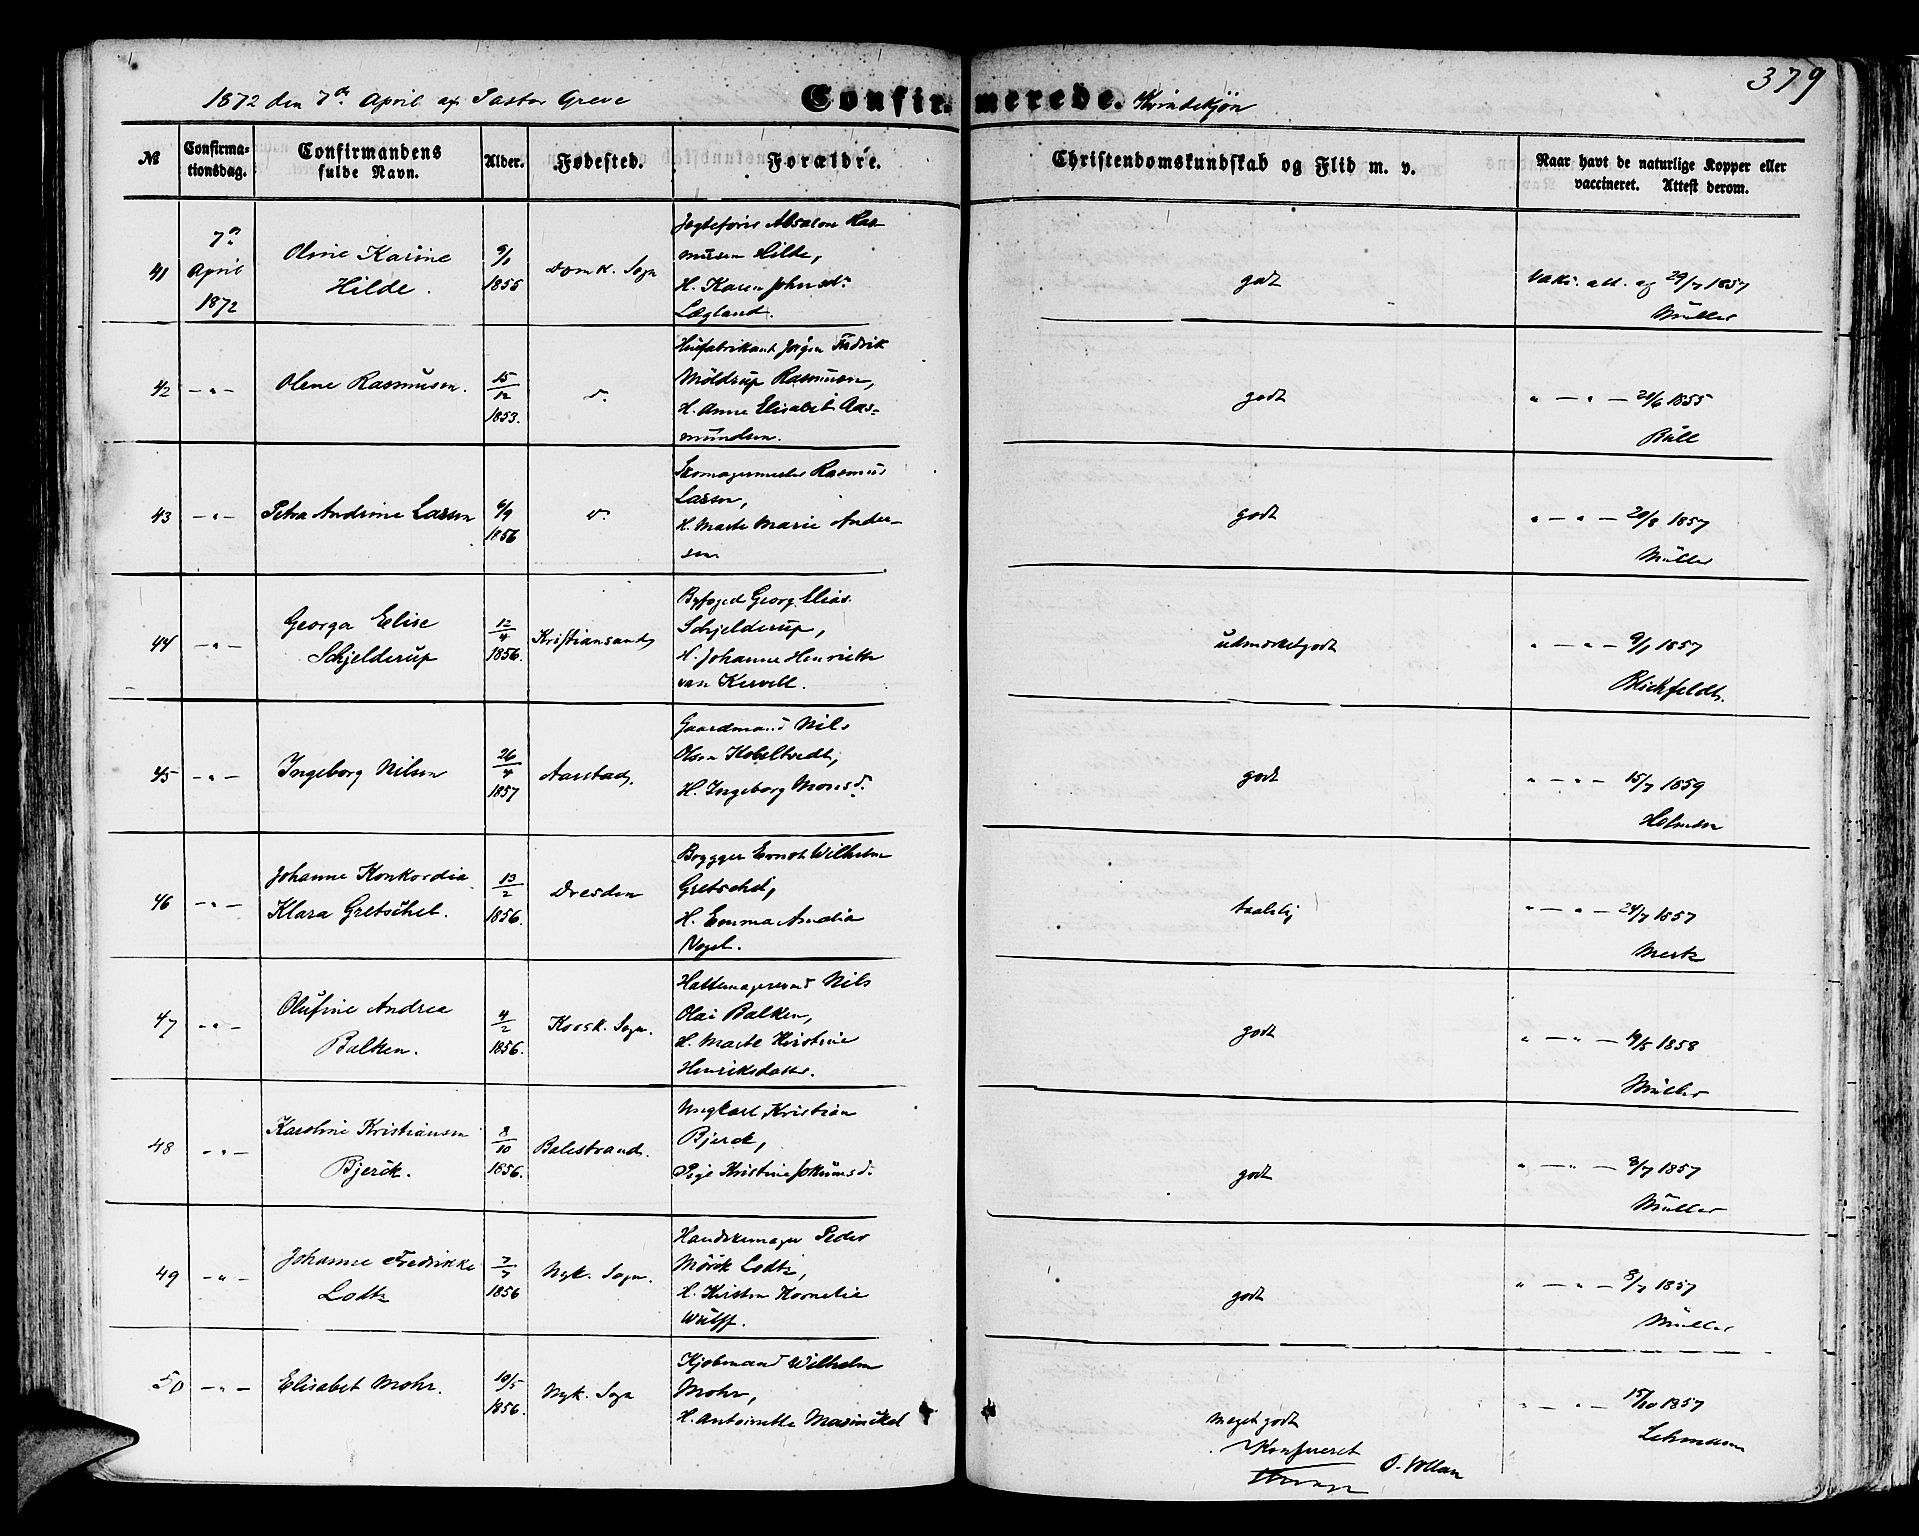 379
1872 den 7de April af Pastor Greve
Confirmerede. Kvindekjøn
№
Confirma-
tionsdag.
Confirmandens
fulde Navn.
Alder.
Fødested.
Forældre.
Christendomskundskab og Flid m. v.
Naar havt de naturlige Kopper eller
vaccineret. Attest derom.
41
7de
April
1872
Oline Karine
Hilde.
9/1
1856
Domk. Sogn
Jægtefører Absalon Ras
musen Hilde,
H. Karen Johnsd.
Lægland.
godt
Vakc. att. af 29/7 1857
Müller
42
— " —
Olene Rasmusen.
15/12
1853.
d.
Moldrup Rasmusen,
H. Anne Elisabet Aas-
mundsen.
godt
" — " — 20/6 1855
Büll
43
— " —
Petra Andrine Larsen
6/9
1856
d.
Skomagermester Rasmus
Larsen,
H. Marte Marie Ander-
sen
godt
" — " — 20/8 1857
Müller
44
— " —
Georga Elise
Schjelderup
12/4
1856.
Kristiansand
Byfoged Georg Elias
Schjelderup,
H. Johanne Henriette
van Kervell.
udmærketgodt
" — " — 9/1 1857
Blichfeldt.
45
— " —
Ingeborg Nilsen
26/4
1857
Aarstad.
Gaardmand Nils
Olsen Kobeltvedt,
H. Ingeborg Monsd.
godt
" — " — 15/7 1859
Holmsen
46
— " —
Johanne Konkordia
Klara Gretschel.
13/2
1856.
Dresden
Brygger Ernst Wilhelm
Gretschel,
H. Emma Amalia
Vogel.
taalelig
" — " — 24/7 1857
Merk
47
— " —
Olufine Andrea
Balken.
4/2
1856.
Korsk. Sogn.
Hattemagersvend Nils
Olai Balken,
H. Marte Kristine
Henriksdatter.
godt
" — " — 19/5 1858
Müller
48
— " —
Karoline Kristiansen
Bjerck.
8/10
1856.
Balestrand.
Ungkarl Kristian
Bjerck,
Pige Kristine Jokumsd.
godt
" — " — 8/7 1857
Müller
49
— " —
Johanne Fredrikke
Lodtz
7/7
1856
Nyk. Sogn.
Handskemager Peder
Mörk Lodtz,
H. Kirsten Kornelia
Wulff.
godt
" — " — 8/7 1857
Müller
50
— " —
Elisabet Mohr.
10/5
1856.
Nyk. Sogn
Kjøbmand Wilhelm
Mohr,
H. Antoinette Mazinckel
meget godt
" — " — 15/10 1857
Lehmann
Konfereret
O. Vollan